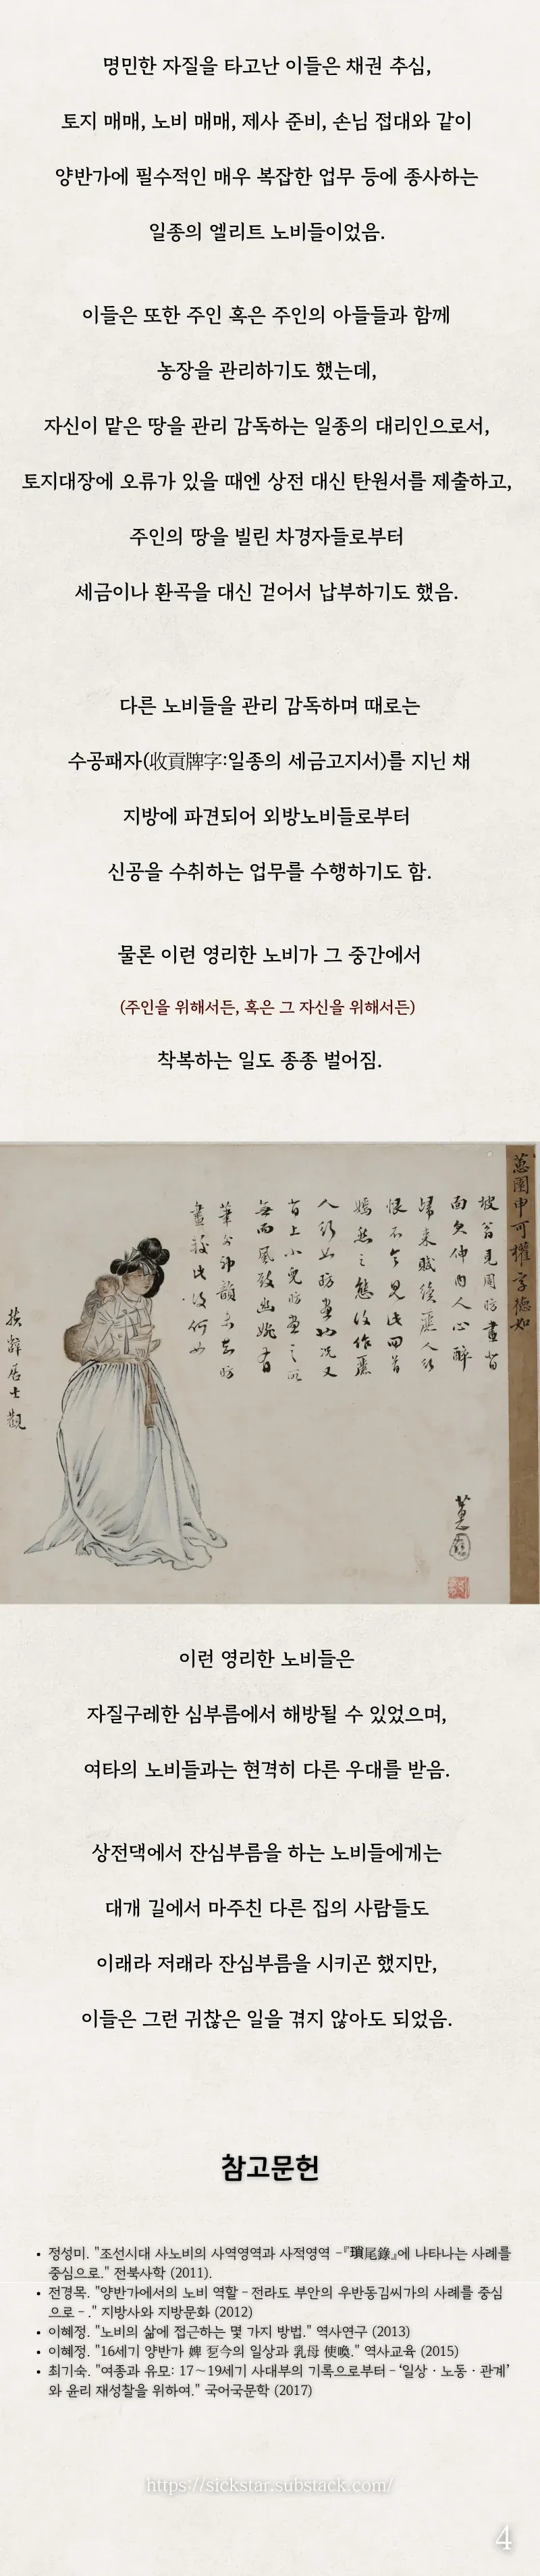 명민한 자질을 타고난 이들은 채권 추심,
토지 매매, 노비 매매, 제사 준비, 손님 접대와 같이
양반가에 필수적인 매우 복잡한 업무 등에 종사하는
일종의 엘리트 노비들이었음.
이들은 또한 주인 혹은 주인의 아들들과 함께
농장을 관리하기도 했는데,
자신이 맡은 땅을 관리 감독하는 일종의 대리인으로서,
토지대장에 오류가 있을 때엔 상전 대신 탄원서를 제출하고,
주인의 땅을 빌린 차경자들로부터
세금이나 환곡을 대신 걷어서 납부하기도 했음.
다른 노비들을 관리 감독하며 때로는
수공패자(收貢牌字:일종의 세금고지서)를 지닌 채
지방에 파견되어 외방노비들로부터
신공을 수취하는 업무를 수행하기도 함.
물론 이런 영리한 노비가 그 중간에서
(주인을 위해서든, 혹은 그 자신을 위해서든)
착복하는 일도 종종 벌어짐.
蕙園申可權字德如
坡翁見周昉畫背
面欠伸內人心醉
歸來賦續麗人行
恨不令見此回首
嫣然之態復作麗
人行如昉畫
首上小兒昉畫之所
無而風致幽婉
筆勢神韻
畫
蕙園
居士觀
이런 영리한 노비들은
자질구레한 심부름에서 해방될 수 있었으며,
여타의 노비들과는 현격히 다른 우대를 받음.
상전댁에서 잔심부름을 하는 노비들에게는
대개 길에서 마주친 다른 집의 사람들도
이래라 저래라 잔심부름을 시키곤 했지만,
이들은 그런 귀찮은 일을 겪지 않아도 되었음.
참고문헌
• 정성미. "조선시대 사노비의 사역영역과 사적영역 -『瑣尾錄』에 나타나는 사례를
중심으로." 전북사학 (2011).
• 전경목. "양반가에서의 노비 역할 - 전라도 부안의 우반동김씨가의 사례를 중심
으로 - ." 지방사와 지방문화 (2012)
• 이혜정. "노비의 삶에 접근하는 몇 가지 방법." 역사연구 (2013)
• 이혜정. "16세기 양반가 婢 乭今의 일상과 乳母 使喚." 역사교육 (2015)
• 최기숙. "여종과 유모: 17~19세기 사대부의 기록으로부터 - '일상 · 노동 · 관계'
와 윤리 재성찰을 위하여." 국어국문학 (2017)
https://sickstar.substack.com/
4